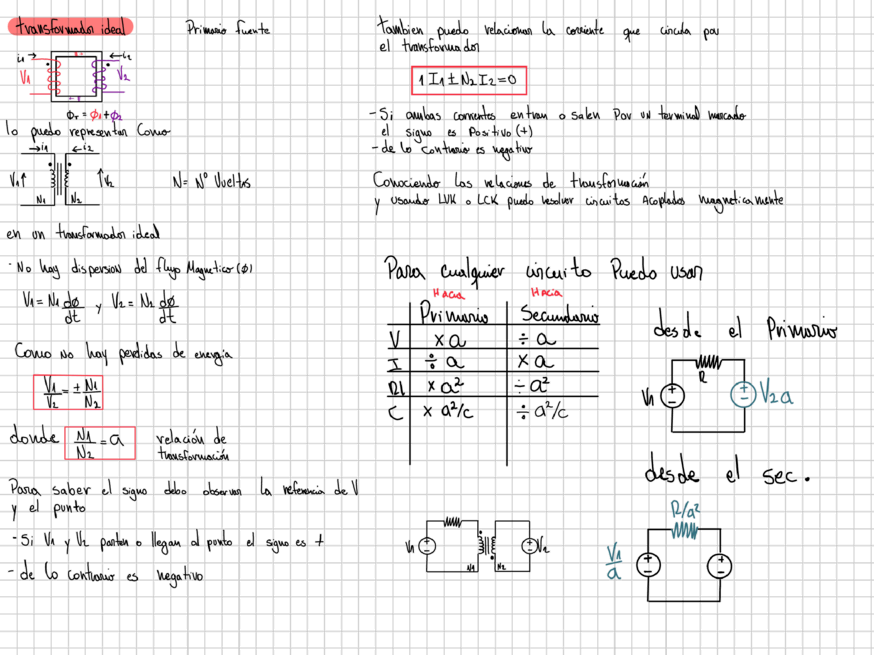 transformador ideal
Primario fuente
i1 → ← i2
V1 V2
Φт = Φ1 + Φ2
lo puedo representar Como
→i1 ←i2
V1↑ ↑V2
N1 N2
N= Nº Vueltas
en un transformador ideal
· No hay dispersion del flujo Magnetico (Φ)
V1 = N1 dø/dt y V2 = N2 dø/dt
Como No hay perdidas de energia
V1/V2 = ± N1/N2
donde N1/N2 = a relación de
transformación
Para saber el signo debo observar la referencia de V
y el punto
- Si V1 y V2 parten o llegan al punto el signo es +
- de lo contrario es negativo
tambien puedo relacionar la corriente que circula por
el transformador
1 I1 ± N2 I2 = 0
- Si ambas corrientes entran o salen Por un terminal marcado
el signo es Positivo (+)
- de lo contrario es negativo
Conociendo las relaciones de transformación
y usando LVK o LCK puedo resolver circuitos Acoplados magneticamente
Para cualquier circuito Puedo usar
Hacia Hacia
Primario Secundario
V x a ÷ a
I ÷ a x a
x a² ÷ a²
C x a²/c ÷ a²/c
V1 N1 N2 V2
desde el Primario
R
V1 V2a
desde el sec.
R/a²
V1/a